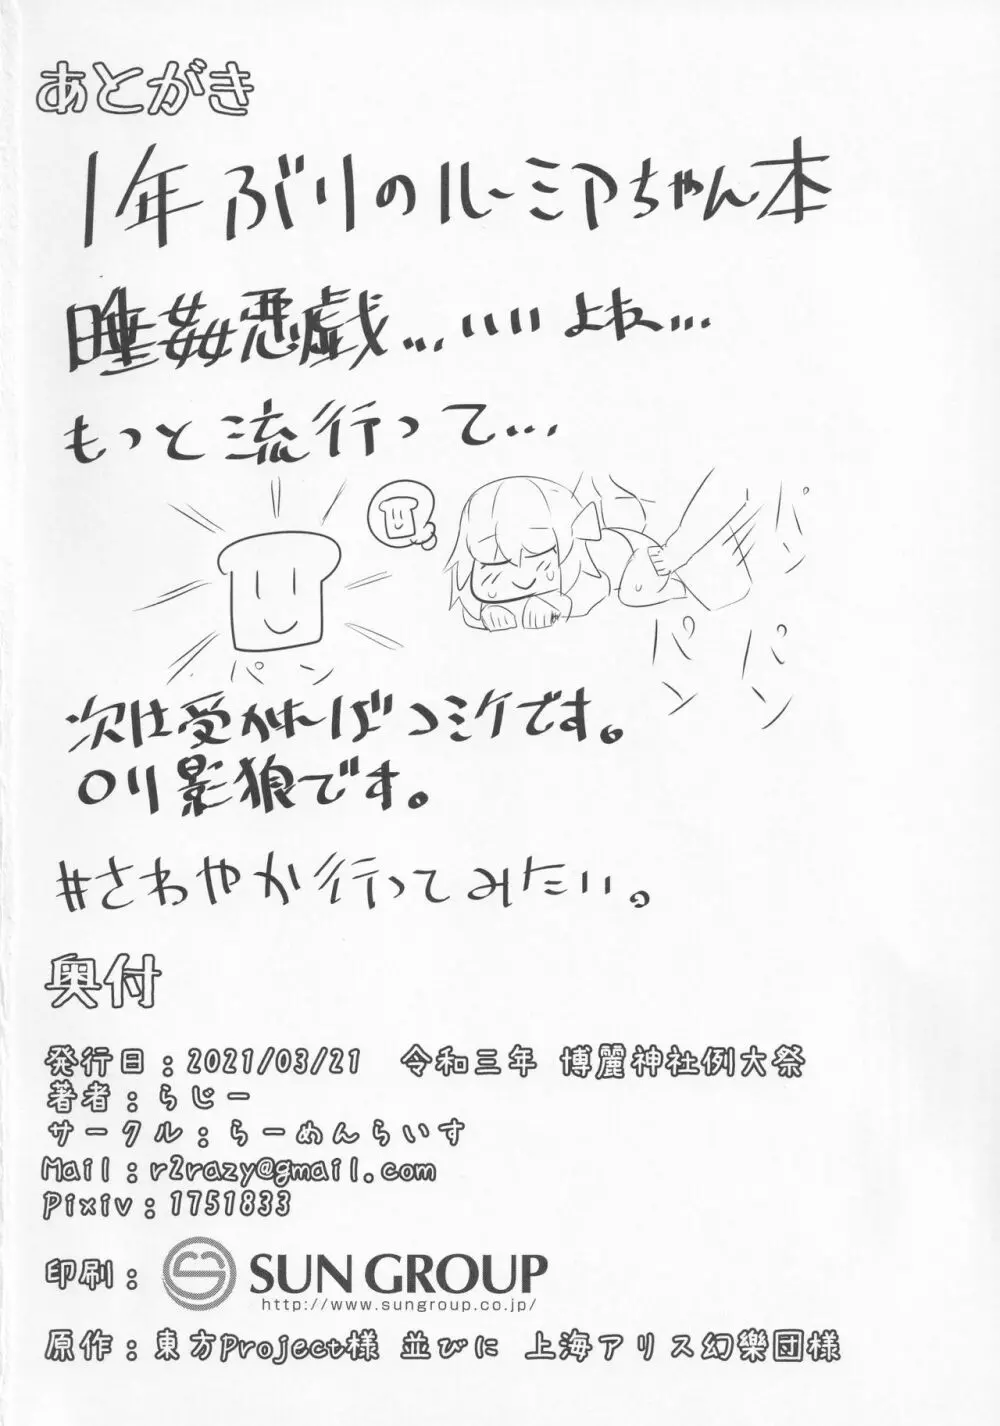 あとがき
1年ぶりのルーミアちゃん本
睡姦悪戯...いいよね...
もっと流行って...
パン
パン
パン
パン
次は受かればコミケです。
ロリ影狼です。
#さわやか行ってみたい。
奥付
発行日:2021/03/21 令和三年 博麗神社例大祭
著者:らじー
サークル:らーめんらいす
Mail:r2razy@gmail.com
Pixiv:1751833
印刷: SUN GROUP
http://www.sungroup.co.jp/
原作:東方Project様 並びに 上海アリス幻樂団様